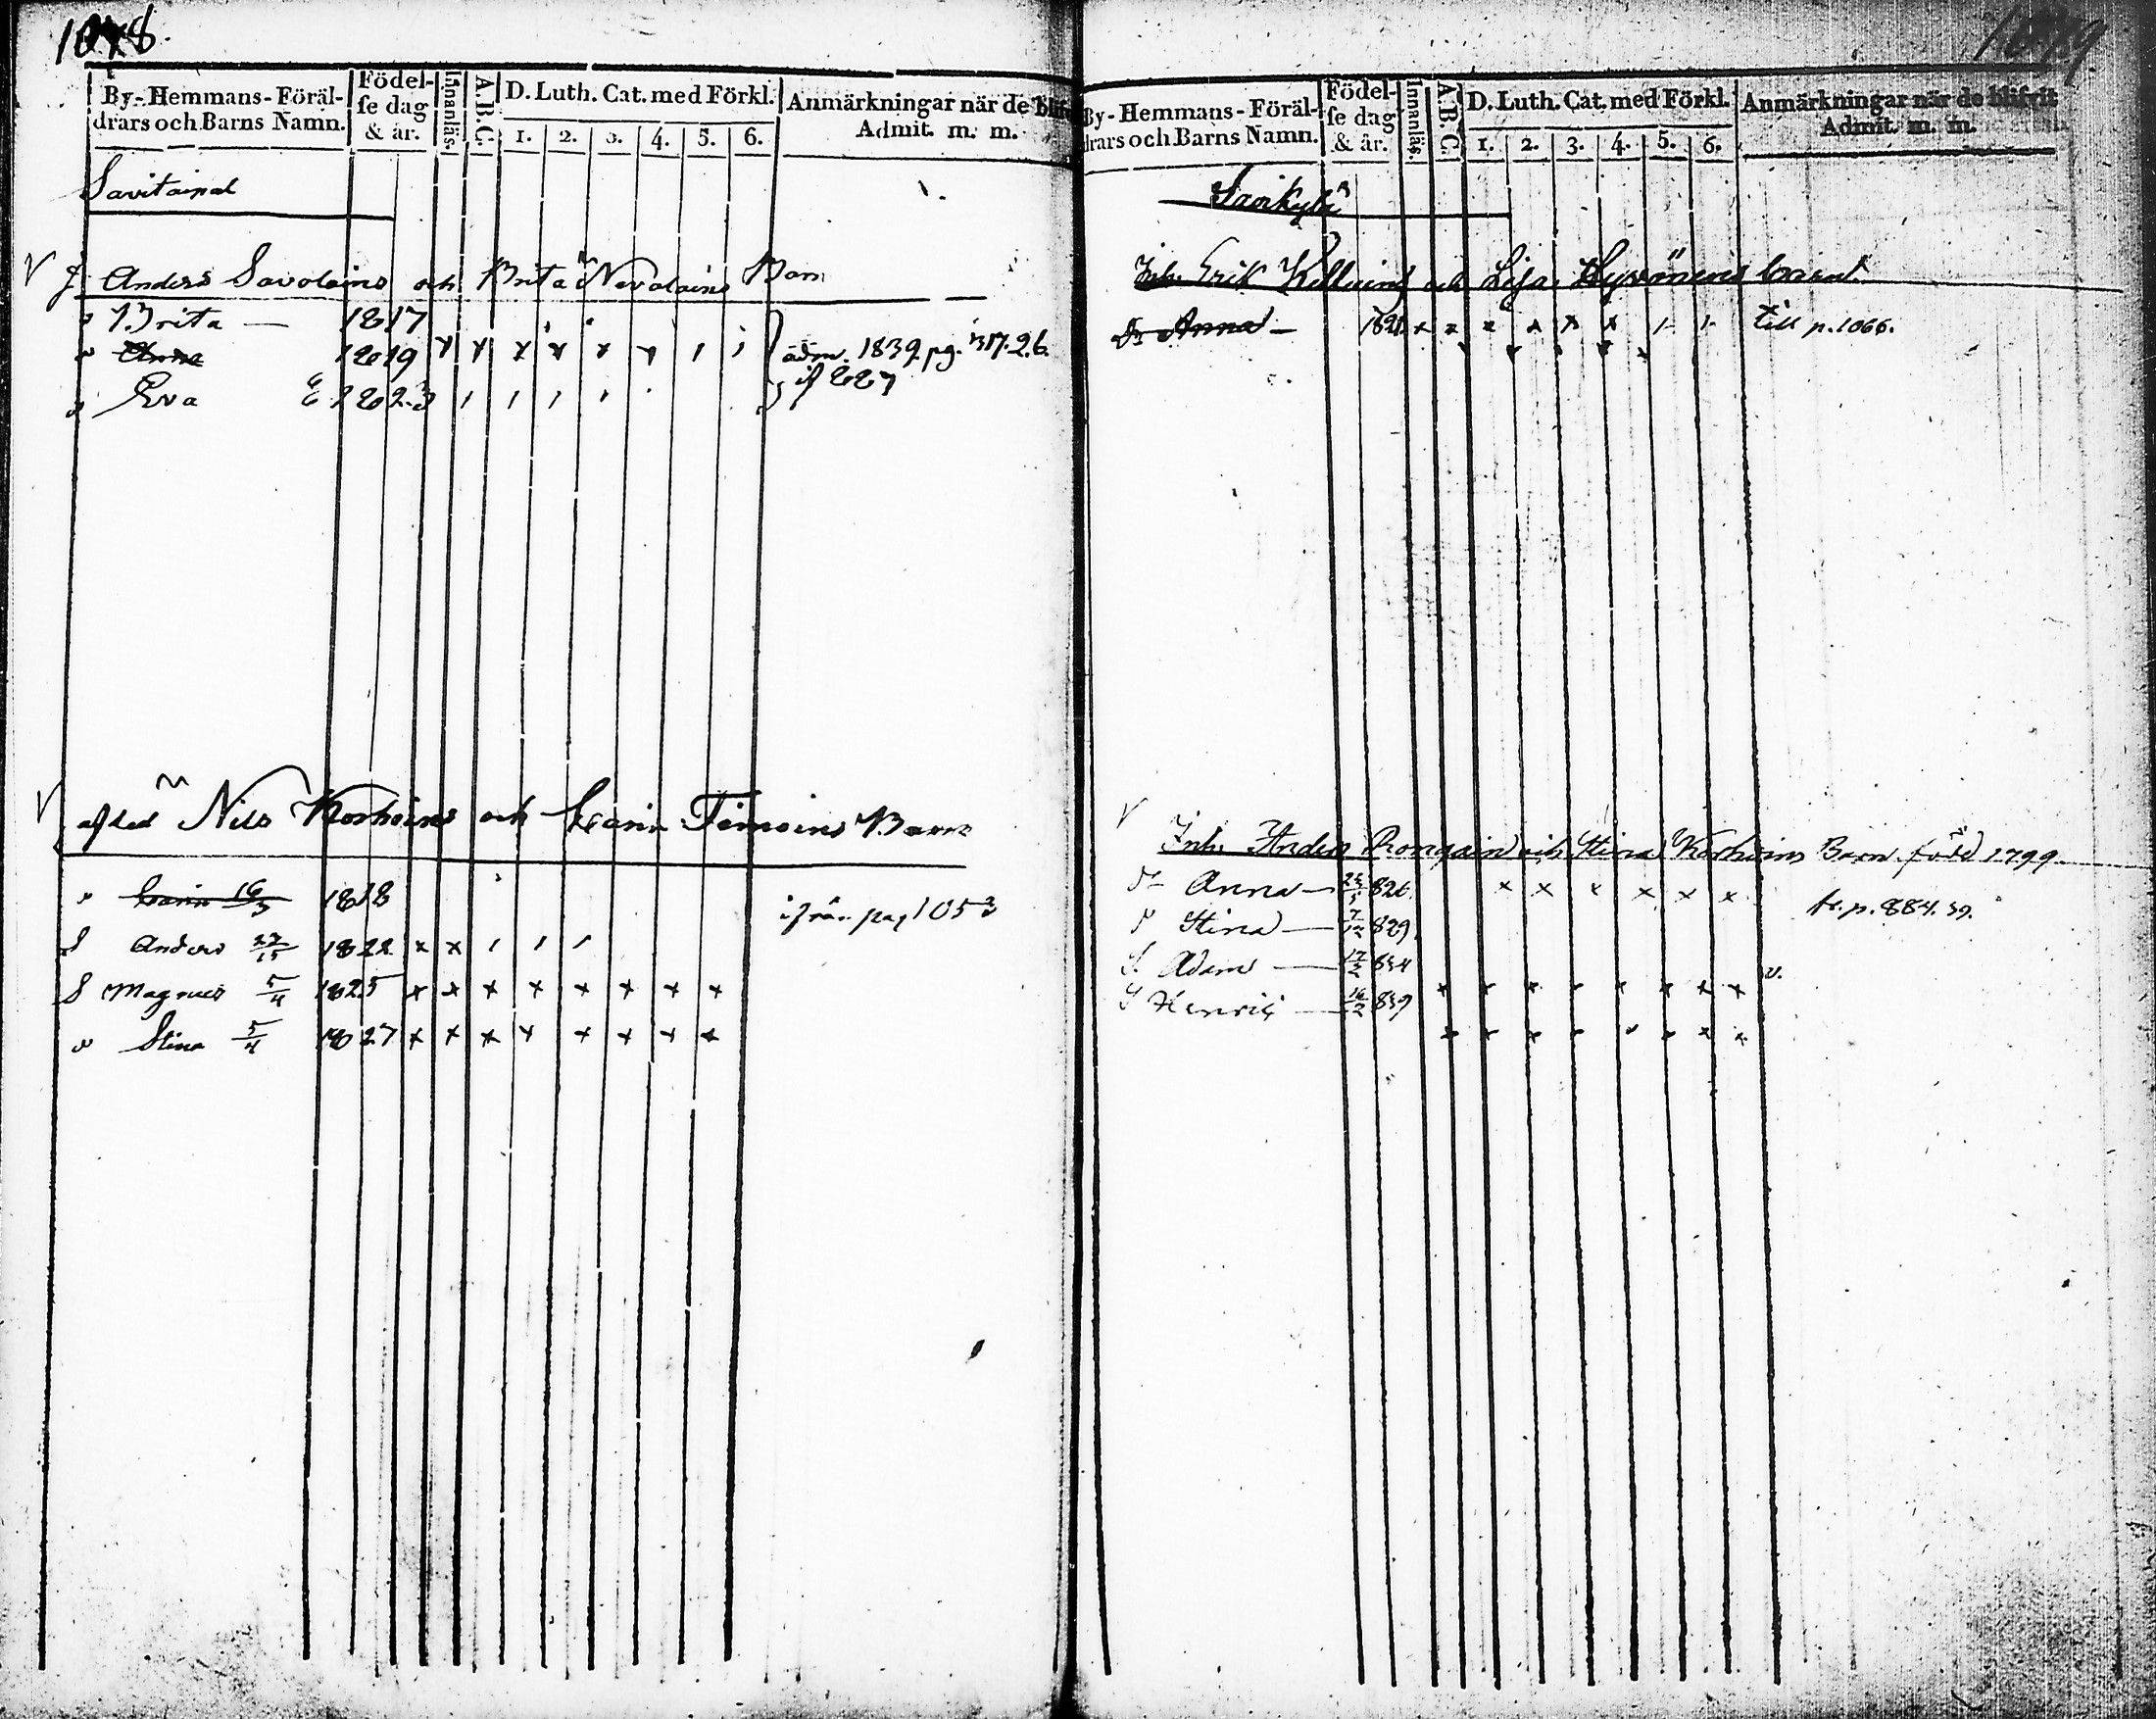 1078.
By-Hemmans-Föräl-
drars och Barns Namn.
Födel-
se dag
& år.
Innanläs.
A.B.C.
D. Luth. Cat. med Förkl.
1. 2. 3. 4. 5. 6.
Anmärkningar när de blif
Admit. m. m.
Savitaipal
Anders Savolains och Brita Nevalains Barn
Brita — 1817
Anna 1819
Eva 1823
adm. 1839. pg.
Nils Korhoins och Carin Timoins Barn
Carin 1818
ifrån pag 1053
Anders 1822
S Magnus 5/4 1825
Stina 5/4 1827
1079
By-Hemmans-Föräl-
drars och Barns Namn.
Födel-
se dag
& år.
Innanläs.
A.B.C.
D. Luth. Cat. med Förkl.
1. 2. 3. 4. 5. 6.
Anmärkningar när de blifvit
Admit. m. m.
Savikylä
Inh. Erik och Lisa Hyvönens barn
Anna — till p. 1066.
Inh. Anders och Stina Korhoins Barn född 1799
Anna — 826.
p. 884.
Stina — 829
S. Adam — 834
S Henric — 839